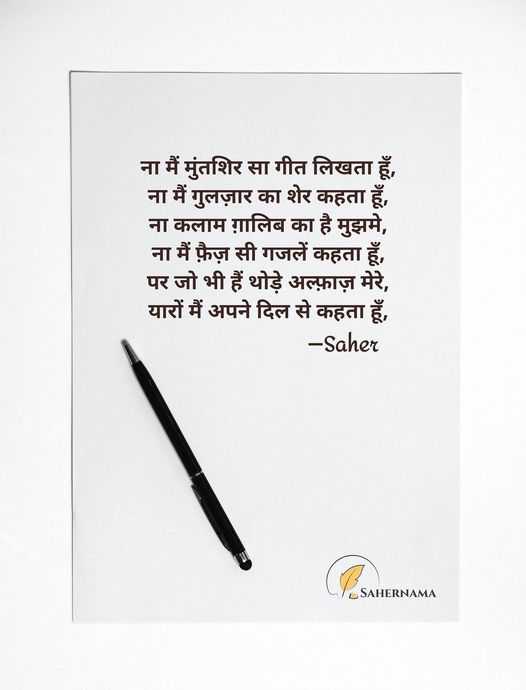 ना मैं मुंतशिर सा गीत लिखता हूँ,
ना मैं गुलज़ार का शेर कहता हूँ,
ना कलाम ग़ालिब का है मुझमे,
ना मैं फ़ैज़ सी गजलें कहता हूँ,
पर जो भी हैं थोड़े अल्फ़ाज़ मेरे,
यारों मैं अपने दिल से कहता हूँ,
—Saher
SAHERNAMA